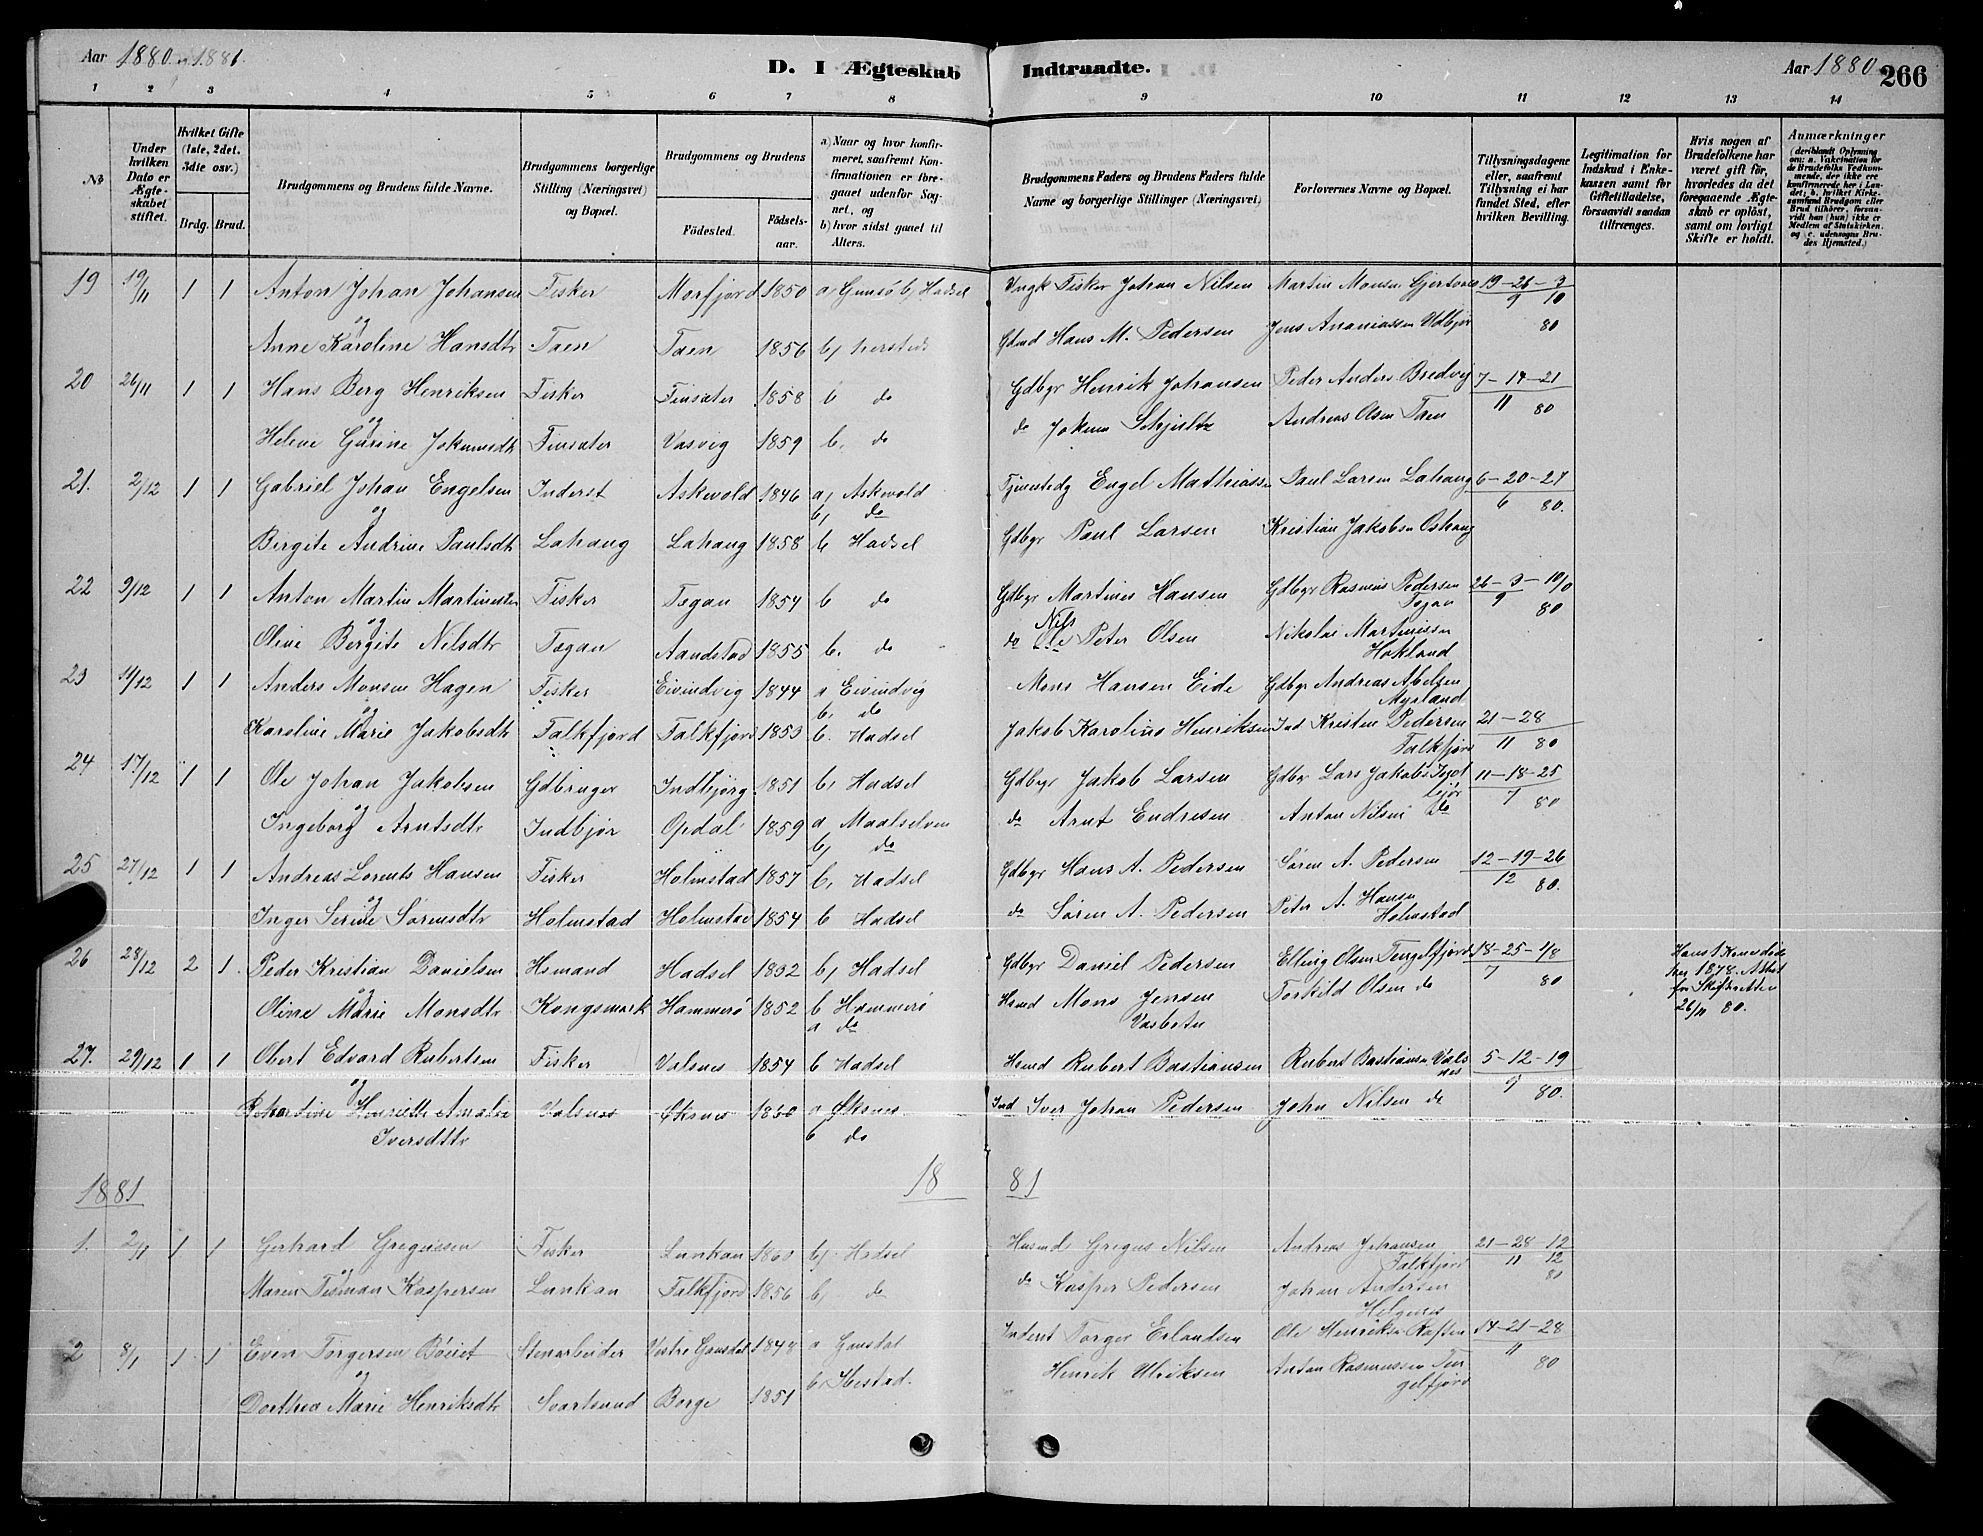 Aar 1880 og 1881.
D. I Ægteskab Indtraadte.
Aar 1880 266
1 2 3 4 5 6 7 8 9 10 11 12 13 14
No
Under hvilken Dato er Ægteskabet stiftet.
Hvilket Gifte (1ste, 2det, 3die osv.)
Brdg. Brud.
Brudgommens og Brudens fulde Navne.
Brudgommens borgerlige Stilling (Næringsvei) og Bopæl.
Brudgommens og Brudens
Fødested. Fødselsaar.
a) Naar og hvor konfirmeret, saafremt Konfirmationen er foregaaet udenfor Sognet, og
b) hvor sidst gaaet til Alters.
Brudgommens Faders og Brudens Faders fulde Navne og borgerlige Stillinger (Næringsvei)
Forlovernes Navne og Bopæl.
Tillysningsdagene eller, saafremt Tillysning ei har fundet Sted, efter hvilken Bevilling.
Legitimation for Indskud i Enkekassen samt for Giftetilladelse, forsaavidt saadan tiltrænges.
Hvis nogen af Brudefolkene har været gift før, hvorledes da det foregaaende Ægteskab er opløst, samt om lovligt Skifte er holdt.
Anmærkninger
19 19/11 1 1 Anton Johan Johansen Fisker Morfjord 1850 b) Hadsel Fisker Johan Nilsen Martin Monsen 19-26-3
9 10
og
Anne Karoline Hansdtr Taen Taen 1856 b) Hans M. Pedersen Jens Ananiassen 80
20 26/11 1 1 Hans Berg Henriksen Fisker Finsæter 1858 b do Gdbgr Henrik Johansen Peder Anders Bredvig 7-14-21
11 80
og
Helene Gurine Finsæter Vasvig 1859 b, do do Jokum Schjultz Andreas Olsen Taen
21. 2/12 1 1 Gabriel Johan Engelsen Inderst Askevold 1846 a) Askevold Engel Mathiassen Paul Larsen Lahaug 6-20-27
b) do 6 80.
og
Bergite Andrine Paulsdtr Lahaug Lahaug 1858 b Hadsel Gdbgr Paul Larsen Kristian Jakobsen
22 9/12 1 1 Anton Martin Fisker Tøgan 1854 b do Gdbgr Martines Hansen Gdbgr Rasmus Pedersen 26-3-10/0
9 80
og
Nils
Oline Bergite Nilsdtr Tøgan Aandstad 1855 b. do do Ole Peter Olsen Nikolai Martinissen
Hokland
23 11/12 1 1 Anders Monsen Hagen Fisker Eivindvig 1844 a Eivindvig Mons Hansen Eide Gdbgr Andreas Abelsen
b, do Myrland
og
Karoline Marie Jakobsdtr Falkfjord Falkfjord 1853 b. Hadsel Jakob Karolius Henriksen Ind Kristen Pedersen 21-28
Falkfjord 11 80
24 17/12 1 1 Ole Johan Jakobsen Gdbruger Indbjørg 1851 b, Hadsel Gdbgr Jakob Larsen Gdbgr Lars Jakobs 11-18-25
7 80
og
Ingeborg Arntsdtr Indbjør Opdal 1859 a Maalselven do Arnt Endresen Anton Nilsen do
b) do
25 27/12 1 1 Andreas Lorents Hansen Fisker Holmstad 1857 b, Hadsel Gdbgr Hans A. Pedersen Søren A. Pedersen 12-19-26
12 80.
og
Inger Serine Sørensdtr Holmstad Holmstad 1854 b Hadsel do Søren A. Pedersen Peter A. Hansen
Holmstad
26 28/12 2 1 Peder Kristian Danielsen Hsmand Hadsel 1832 b) Hadsel Gdbgr Daniel Pedersen Elling Olsen Tengelfjord 18-25-1/8 Hans 1 Kone døde
7 80 1878. Attest
for Skifteretten
26/11 80.
og
Oline Marie Monsdtr Kongsmark Hammerø 1852 b Hammerø Hsmd Mons Jensen Torkild Olsen do
a do
27. 29/12 1 1 Obert Edvard Rubertsen Fisker Valsnes 1854 b Hadsel Hsmd Rubert Bastiansen Rubert Bastiansen Valsnes 5-12-19
9 80.
og
Henriette Amalie Valsnes Øksnes 1860 a Øksnes Ind Iver Johan Pedersen John Nilsen do
Iversdttr b do
1881 18 81
1. 2/1 1 1 Gerhard Gregusen Fisker Lunkan 1860 b) Hadsel Husmd Gregus Nilsen Andreas Johansen 21-28-12
Falkfjord 11 12
80
og
Maren Kaspersen Lunkan Falkfjord 1856 b) do do Kasper Pedersen Johan Andersen
Helgenes
2 8/1 1 1 Even Torgersen Bøiet Stenarbeider Vestre Gausdal 1848 a Gausdal Inderst Torger Erlandsen Ole Henriksen Raften 14-21-28
11 80
og
Dorthea Marie Henriksdtr Svartsund Borge 1851 Henrik Ulriksen Anton Rasmussen Tengelfjord